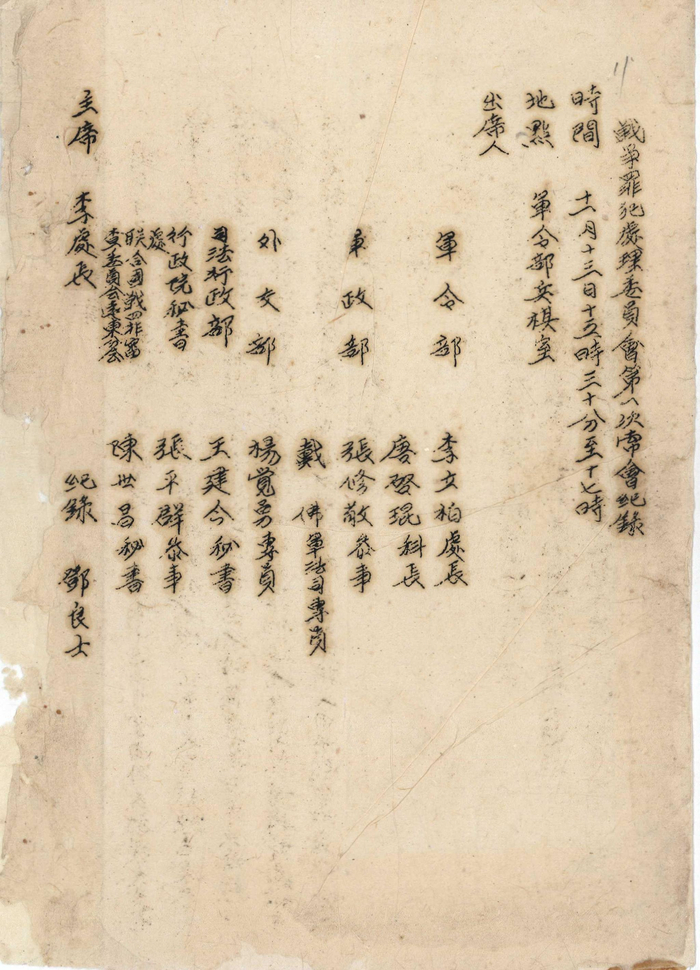 戰爭罪犯處理委員會第八次常會紀錄
時間 十一月十三日十五時三十分至十七時
地點 軍令部兵棋室
出席人
軍令部 李文柏處長
唐啓琨科長
軍政部 張修敬參事
戴佛軍法司專員
外交部 楊覺勇專員
司法行政部 王建今秘書
行政院秘書處 張平群參事
聯合國戰罪審查委員會遠東分會 陳世昌秘書
主席 李處長 紀錄 鄧良士